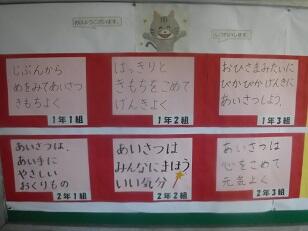 おはようございます。
じぶんから
めをみてあいさつ
きもちよく
1年1組
はっきりと
きもちをこめて
げんきよく
1年2組
おひさまみたいに
ぴかぴかげんきに
あいさつしよう。
1年3組
あいさつは、
あい手に
やさしい
おくりもの
2年1組
あいさつは
みんなにまほう
いい気分
2年2組
あいさつは
心をこめて
元気よく
2年3組